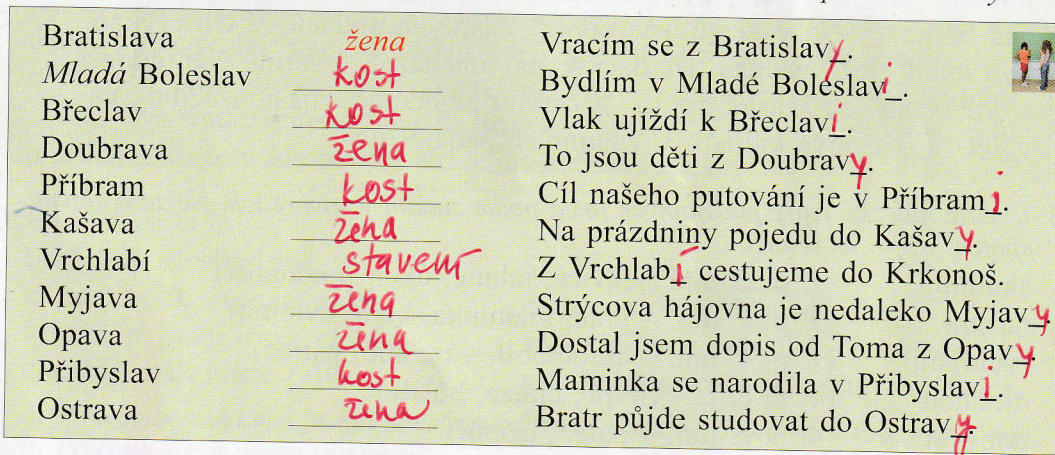 Bratislava žena Vracím se z Bratislavy.
Mladá Boleslav kost Bydlím v Mladé Boleslavi.
Břeclav kost Vlak ujíždí k Břeclavi.
Doubrava žena To jsou děti z Doubravy.
Příbram kost Cíl našeho putování je v Příbrami.
Kašava žena Na prázdniny pojedu do Kašavy.
Vrchlabí stavení Z Vrchlabí cestujeme do Krkonoš.
Myjava žena Strýcova hájovna je nedaleko Myjavy.
Opava žena Dostal jsem dopis od Toma z Opavy.
Přibyslav kost Maminka se narodila v Přibyslavi.
Ostrava žena Bratr půjde studovat do Ostravy.